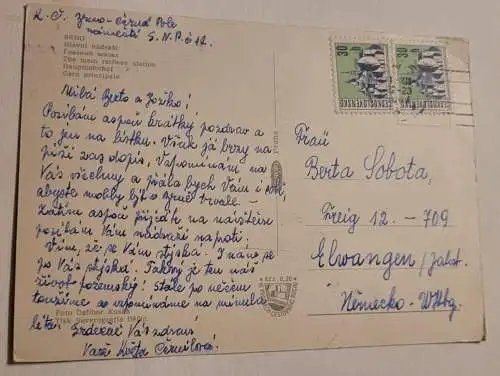 R. Č. Brno-Černá Pole
náměstí S.N.P. č 12.
BRNO
Hlavní nádraží
The main railway station
Hauptbahnhof
Gare principale
Milá Berto a Jožko!
Posílám aspoň krátký pozdrav a
to jen na lístku. Však já brzy na-
píši zas dopis. Vzpomínám na
Vás všechny a přála bych Vám i
abyste mohly být v Brně trvale. –
Zatím aspoň přijeďte na návštěvu
posílám Vám nádraží naproti.
Vím, že se Vám stýská. I nám se
po Vás stýská. Takový je ten náš
život pozemský! Stále po něčem
toužíme a vzpomínáme na minulá
léta. Srdečně Vás zdraví
Vaše Květa Černilová.
Foto Dalibor Kusák
Praha
Kčs 0,30
30 h
ČESKOSLOVENSKO
30 h
ČESKOSLOVENSKO
Frau
Berta Sobota,
Freig 12. - 709
Elwangen/Jahst.
Německo - Wttbg.